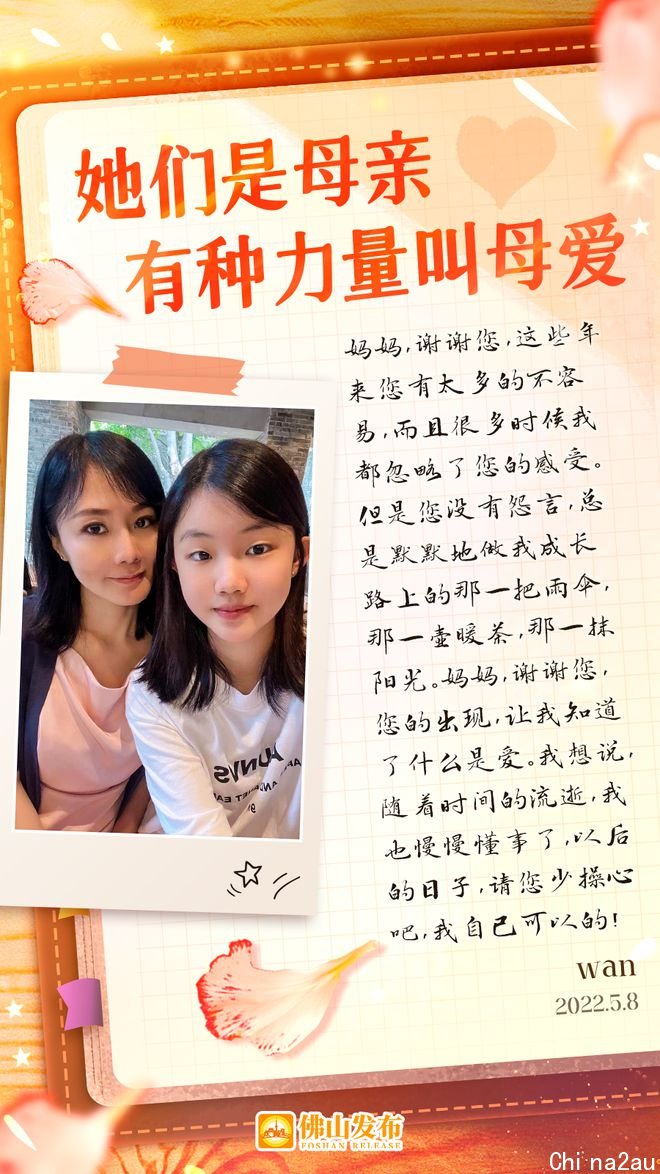 她们是母亲
有种力量叫母爱
妈妈,谢谢您,这些年
来您有太多的不容
易,而且很多时候我
都忽略了您的感受。
但是您没有怨言,总
是默默地做我成长
路上的那一把雨伞,
那一壶暖茶,那一抹
阳光。妈妈,谢谢您,
您的出现,让我知道
了什么是爱。我想说,
随着时间的流逝,我
也慢慢懂事了,以后
的日子,请您少操心
吧,我自己可以的!
wan
2022.5.8
佛山发布
FOSHAN RELEASE
Chi na2au